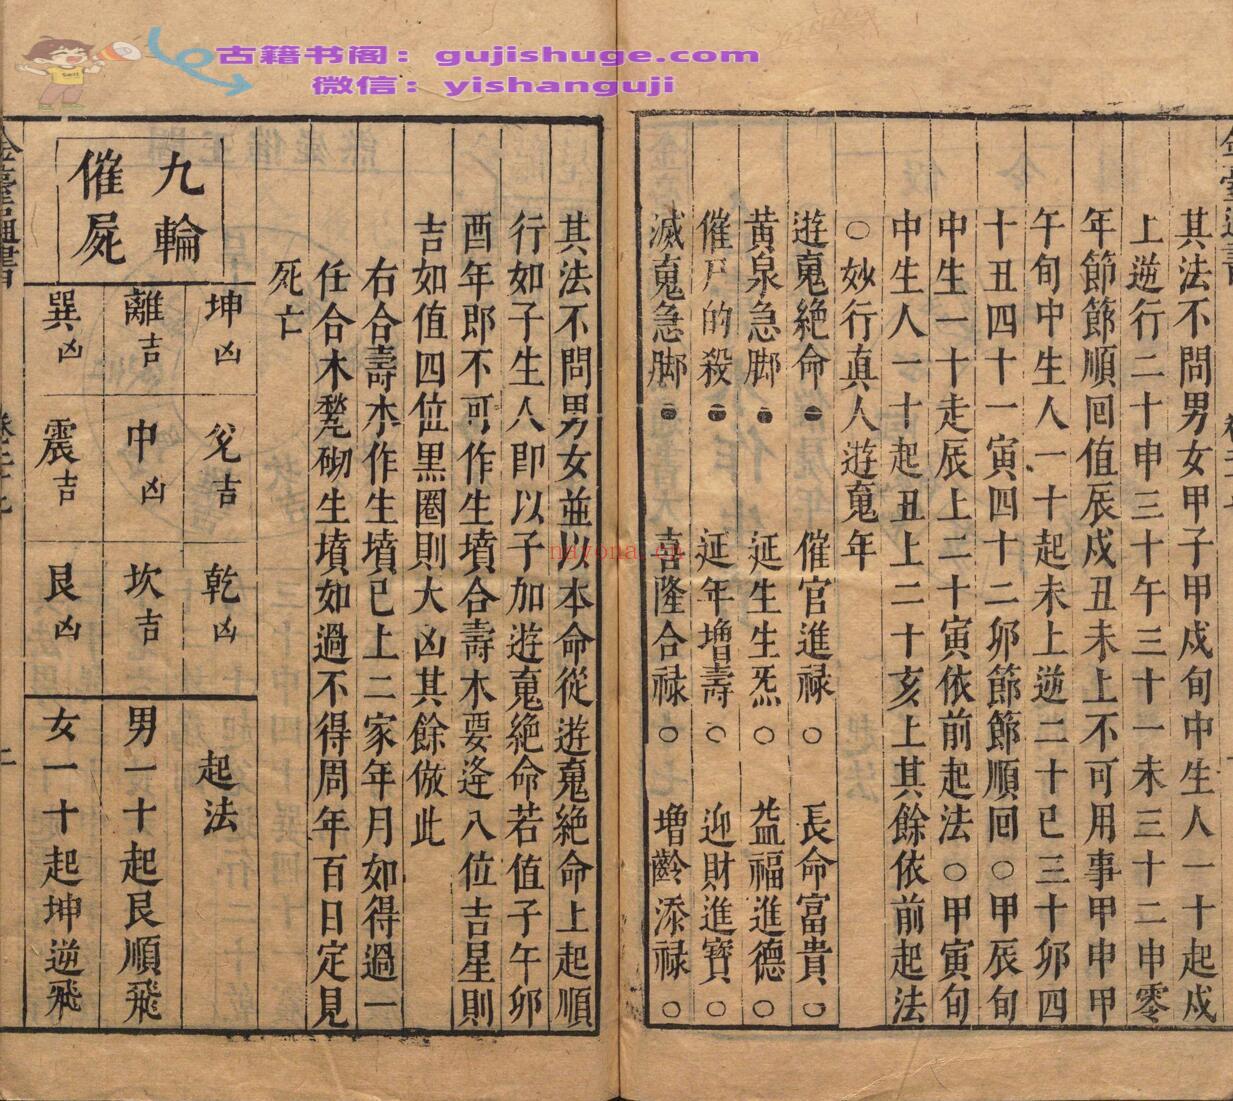 古籍书阁：gujishuge.com
微信：yishanguji
其法不問男女甲子甲戍旬中生人一十起戍
上逆行二十申三十午三十一未三十二申零
年節節順回值辰戍丑未上不可用事甲申甲
午旬中生人一十起未上逆二十巳三十卯四
十丑四十一寅四十二卯節節順回○甲辰旬
中生一十走辰上二十寅依前起法○甲寅旬
中生人一十起丑上二十亥上其餘依前起法
○妙行真人遊䰟年
遊䰟絶命● 催官進禄○ 長命富貴○
黄泉急脚● 延生生炁○ 益福進德○
催尸的殺● 延年增壽○ 迎財進寶○
滅䰟急脚● 喜隆合禄○ 增齡添禄○
其法不問男女並以本命從遊䰟絶命上起順
行如子生人即以子加遊䰟絶命若值子午卯
酉年即不可作生墳合壽木要逢八位吉星則
吉如值四位黑圈則大凶其餘倣此
右合壽木作生墳已上二家年月如得過一
任合木甃砌生墳如過不得周年百日定見
死亡
九輪
催屍
坤凶 兌吉 乾凶 起法
離吉 中凶 坎吉 男一十起艮順飛
巽凶 震吉 艮凶 女一十起坤逆飛
nayona.cn